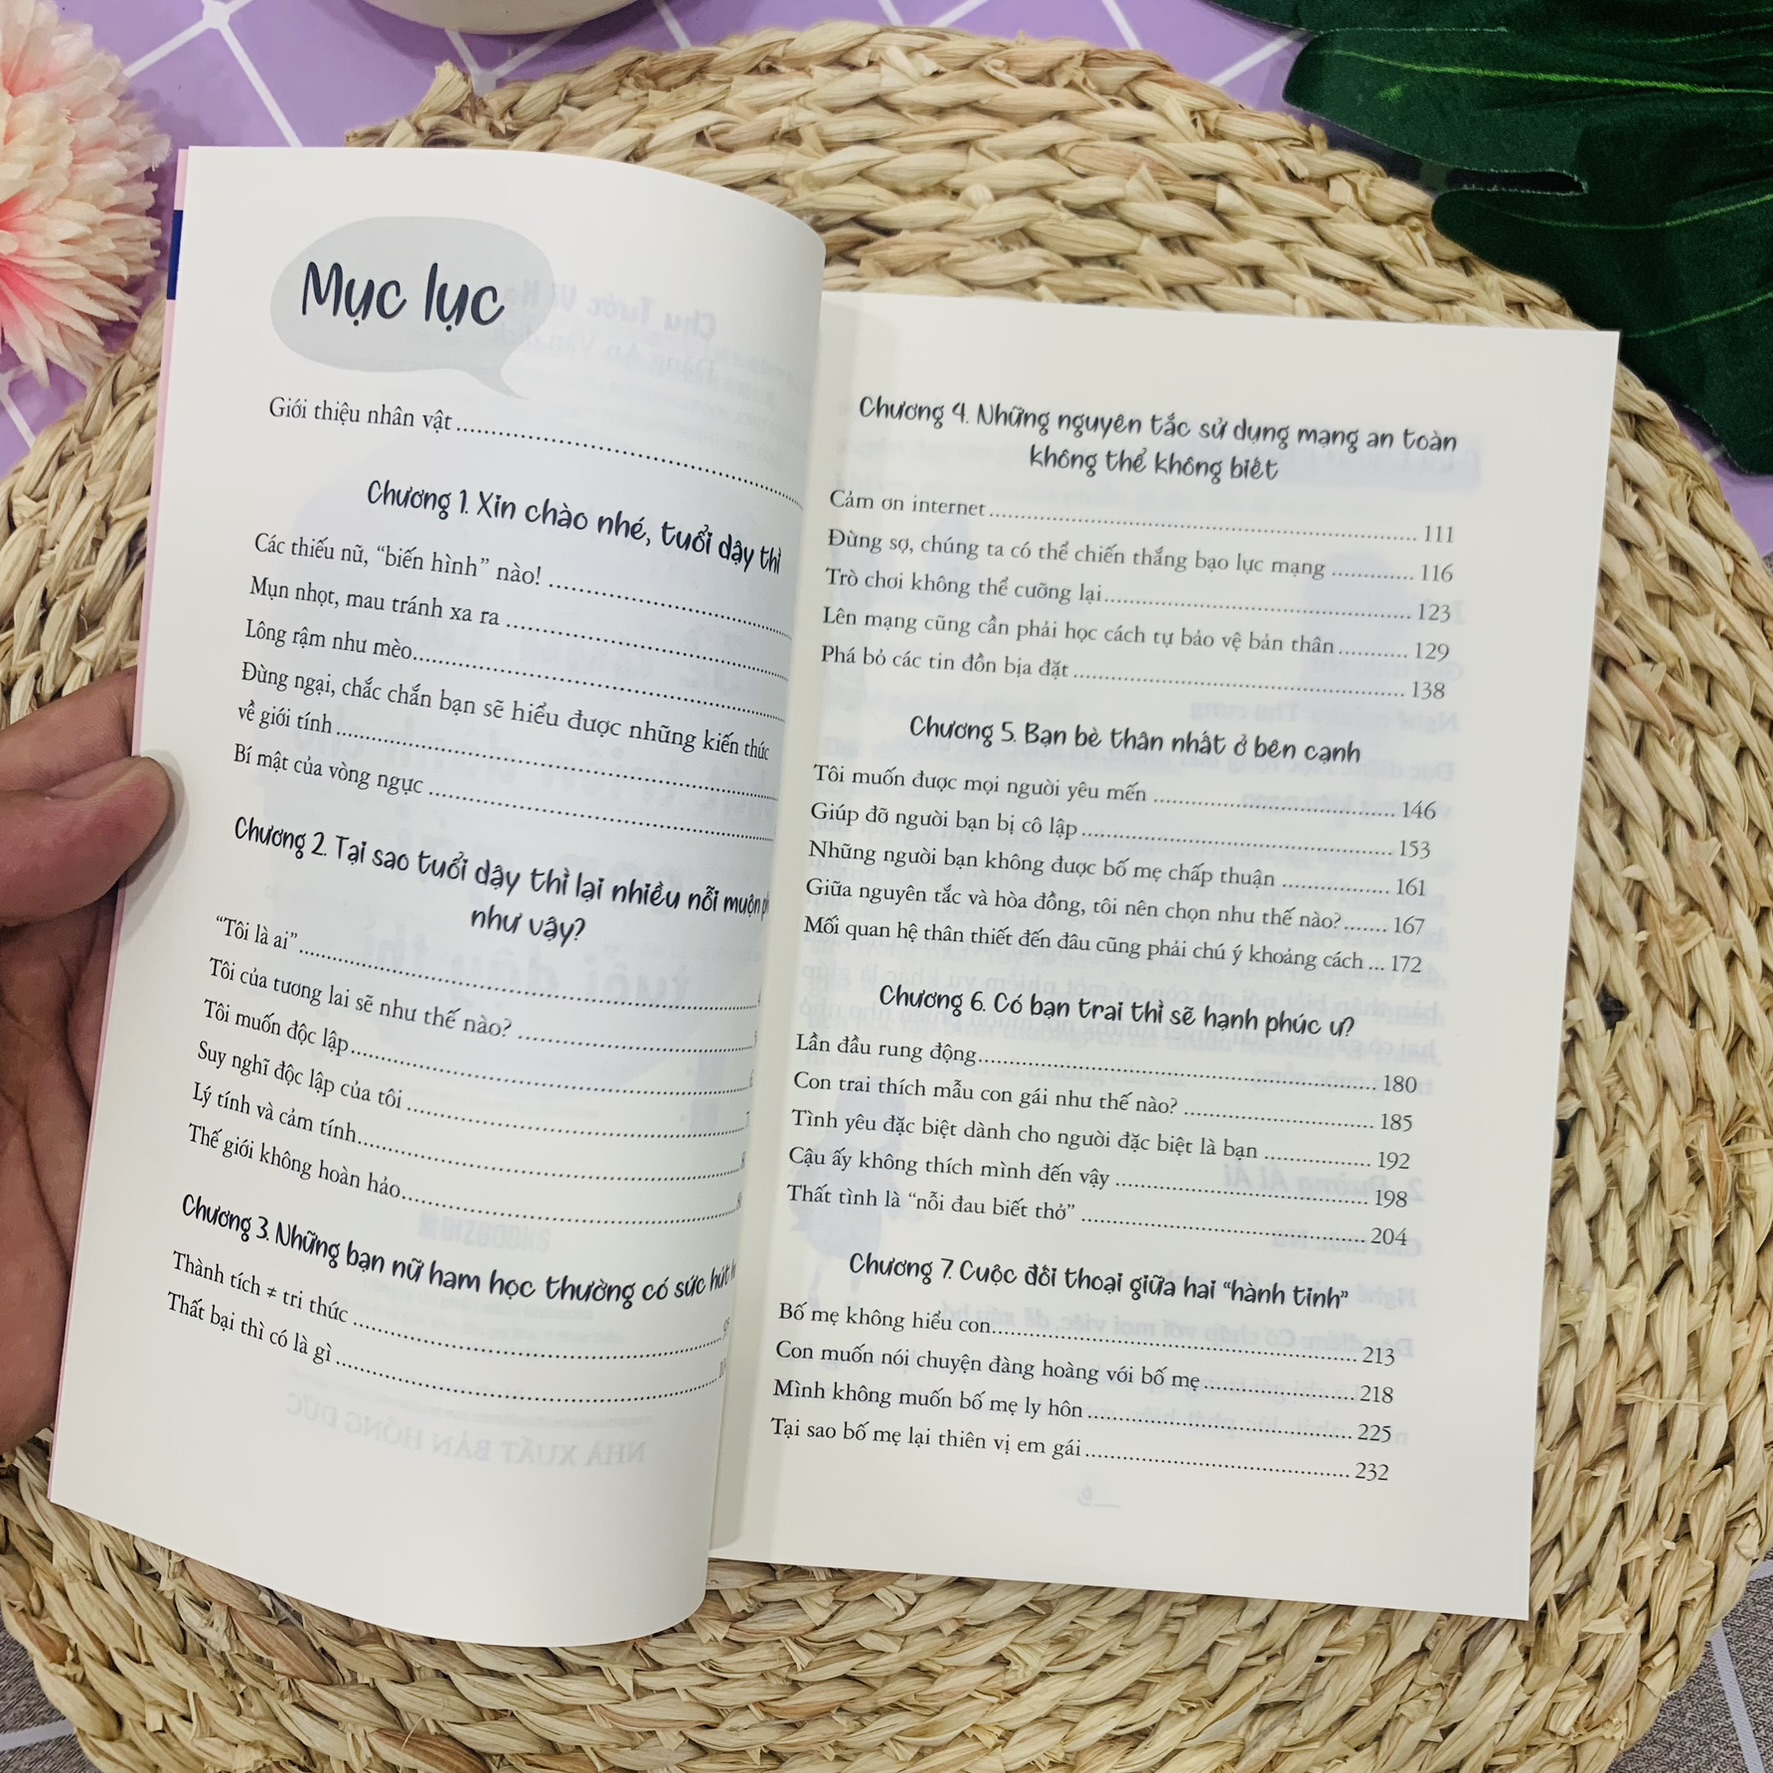 Mục lục
Giới thiệu nhân vật
Chương 1. Xin chào nhé, tuổi dậy thì
Các thiếu nữ, “biến hình” nào!
Mụn nhọt, mau tránh xa ra
Lông rậm như mèo
Đừng ngại, chắc chắn bạn sẽ hiểu được những kiến thức
về giới tính
Bí mật của vòng ngực
Chương 2. Tại sao tuổi dậy thì lại nhiều nỗi muộn
như vậy?
“Tôi là ai”
Tôi của tương lai sẽ như thế nào?
Tôi muốn độc lập
Suy nghĩ độc lập của tôi
Lý tính và cảm tính
Thế giới không hoàn hảo
Chương 3. Những bạn nữ ham học thường có sức hút
Thành tích ≠ tri thức
Thất bại thì có là gì
Chương 4. Những nguyên tắc sử dụng mạng an toàn
không thể không biết
Cảm ơn internet 111
Đừng sợ, chúng ta có thể chiến thắng bạo lực mạng 116
Trò chơi không thể cưỡng lại 123
Lên mạng cũng cần phải học cách tự bảo vệ bản thân 129
Phá bỏ các tin đồn bịa đặt 138
Chương 5. Bạn bè thân nhất ở bên cạnh
Tôi muốn được mọi người yêu mến 146
Giúp đỡ người bạn bị cô lập 153
Những người bạn không được bố mẹ chấp thuận 161
Giữa nguyên tắc và hòa đồng, tôi nên chọn như thế nào? 167
Mối quan hệ thân thiết đến đâu cũng phải chú ý khoảng cách 172
Chương 6. Có bạn trai thì sẽ hạnh phúc ư?
Lần đầu rung động 180
Con trai thích mẫu con gái như thế nào? 185
Tình yêu đặc biệt dành cho người đặc biệt là bạn 192
Cậu ấy không thích mình đến vậy 198
Thất tình là “nỗi đau biết thở” 204
Chương 7. Cuộc đối thoại giữa hai “hành tinh”
Bố mẹ không hiểu con 213
Con muốn nói chuyện đàng hoàng với bố mẹ 218
Mình không muốn bố mẹ ly hôn 225
Tại sao bố mẹ lại thiên vị em gái 232